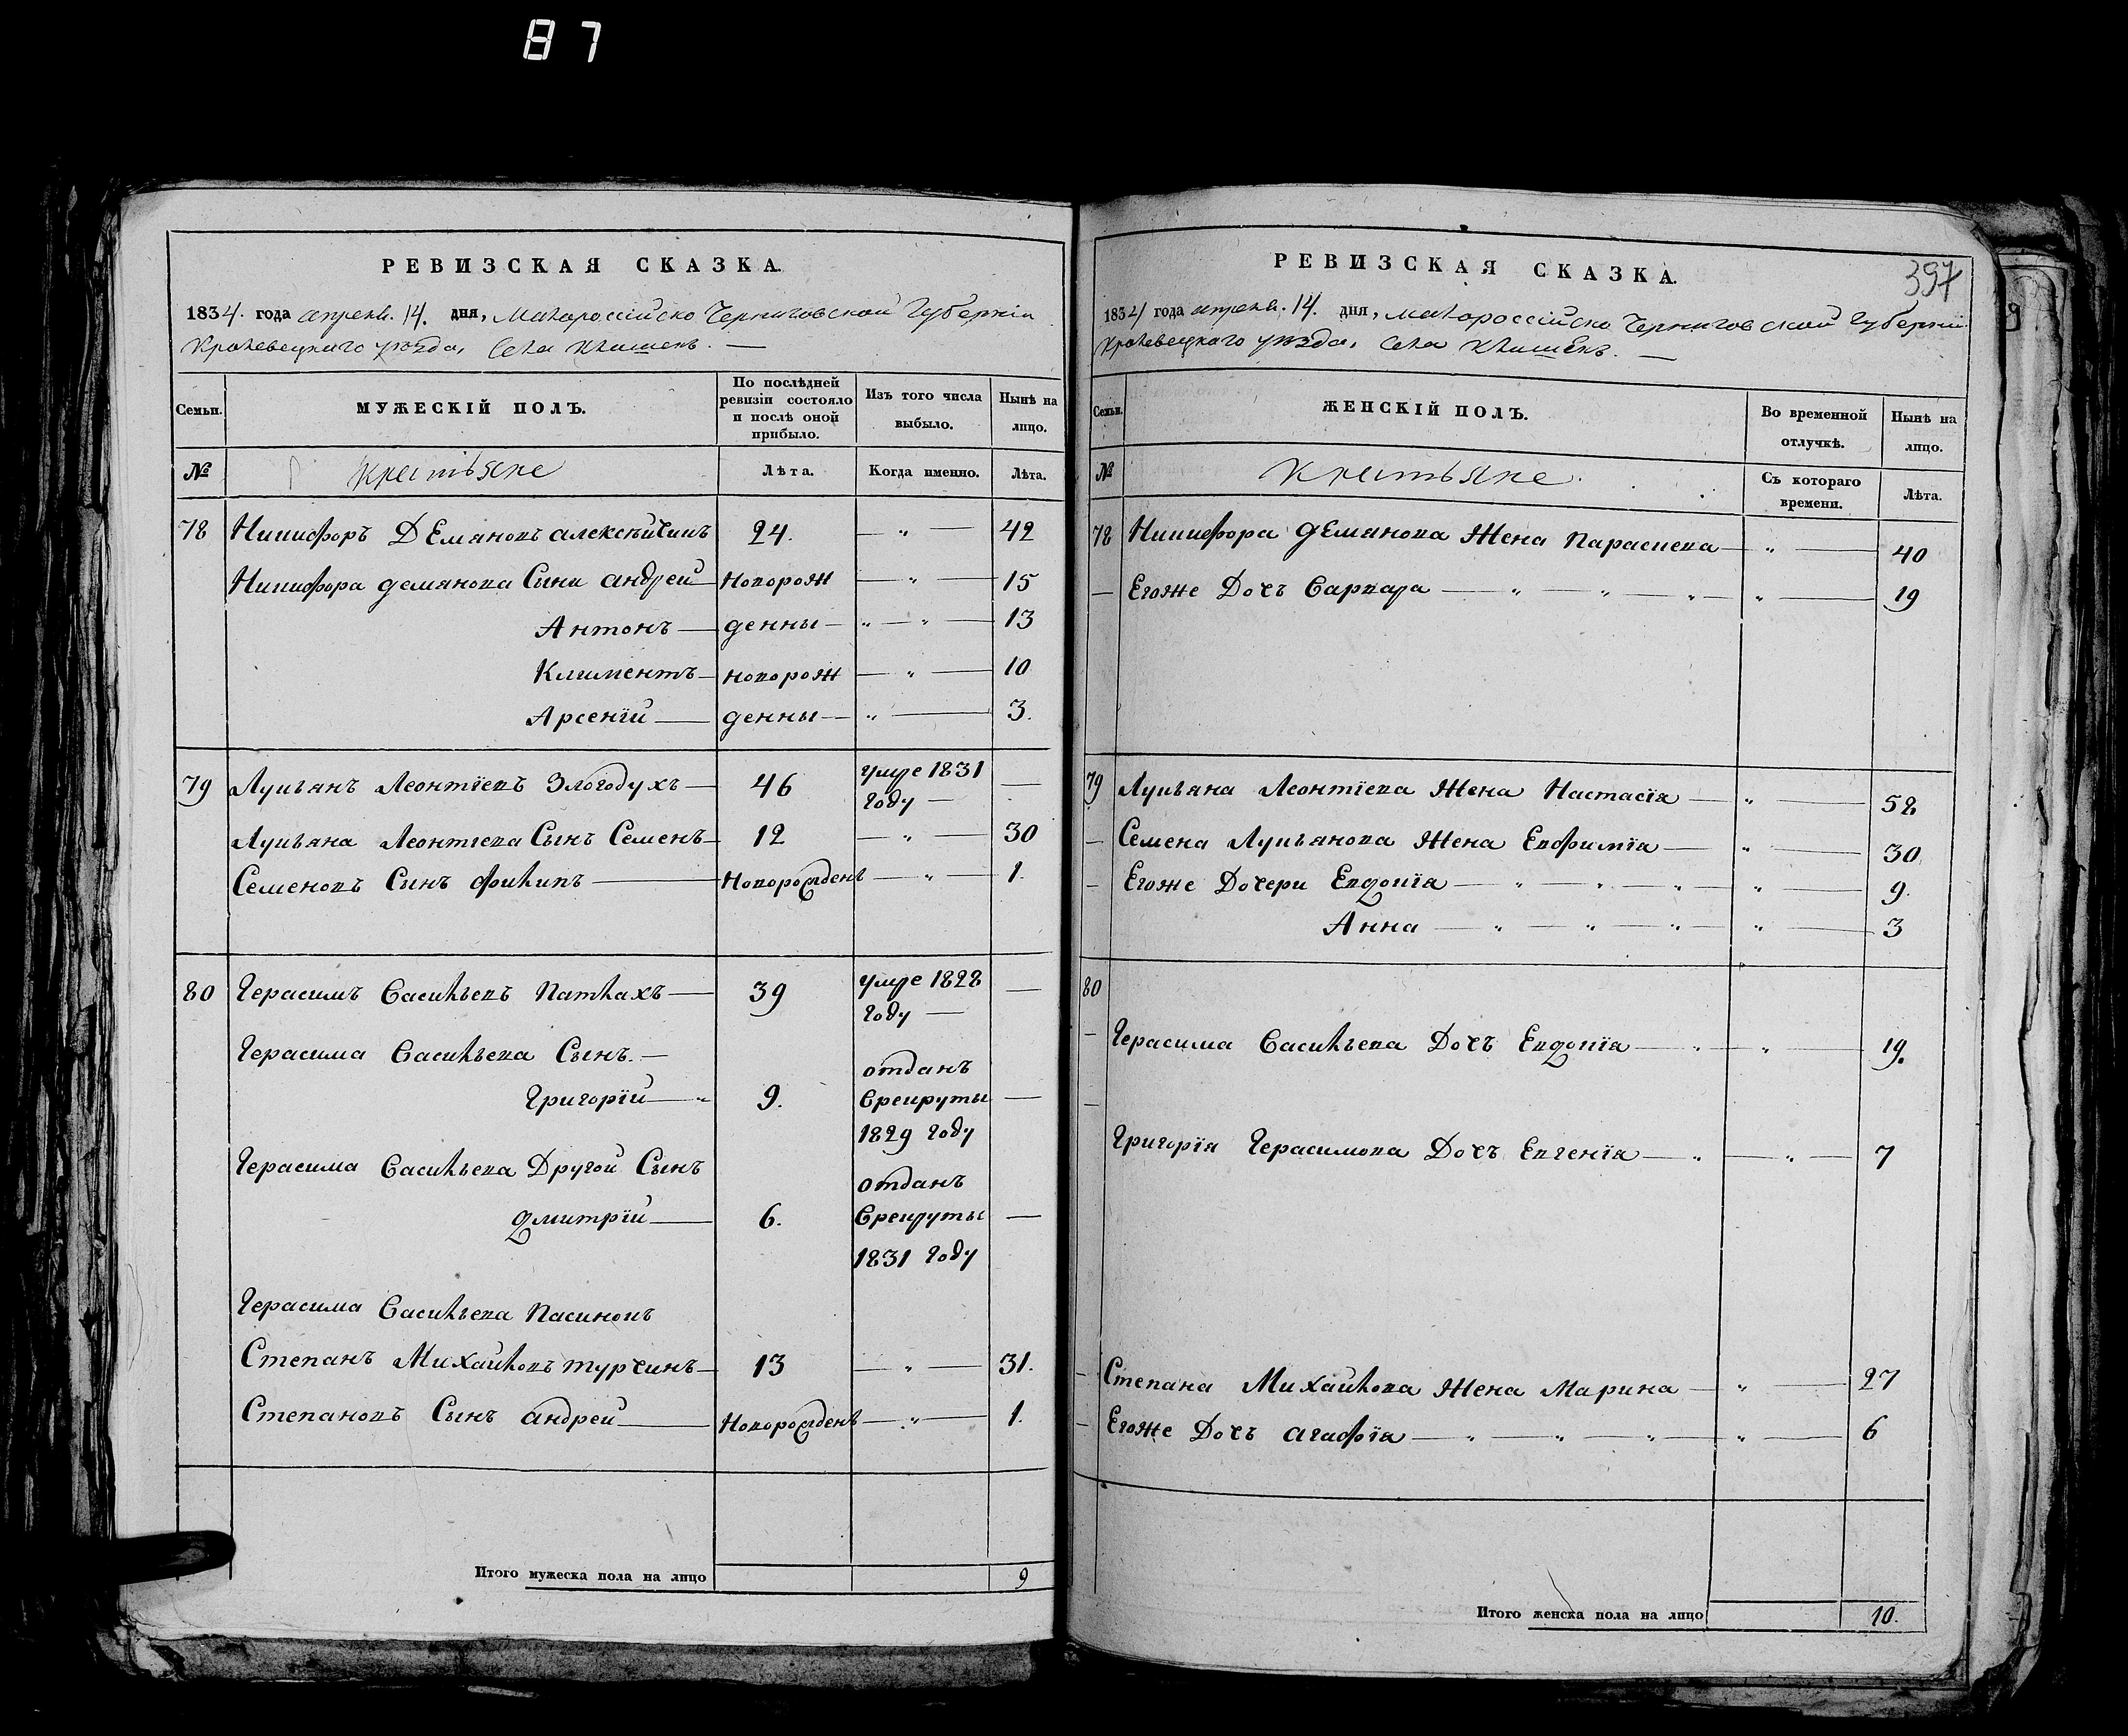 87
РЕВИЗСКАЯ СКАЗКА.
1834. года апреля. 14. дня, Малороссійско Черниговской Губерніи
Кролевецкаго уѣзда, Села Клишекъ. —
Семьи.
МУЖЕСКІЙ ПОЛЪ.
По послѣдней ревизіи состояло и послѣ оной прибыло.
Изъ того числа выбыло.
Нынѣ на лицо.
№
Крестьяне
Лѣта.
Когда именно.
Лѣта.
78 Никифоръ Демяновъ Алексѣйчикъ 24. — " — 42
Никифора демянова Сыни андрей — новорож — " — 15
Антонъ — денны — " — " — 13
Климентъ — новорож — " — 10
Арсеній — денны — " — 3.
79 Лукьянъ Леонтіевъ Злогодухъ — 46 умре 1831 году — —
Лукьяна Леонтіева Сынъ Семенъ — 12 — " — 30
Семеновъ Сынъ Филипъ — Новорожденъ — " — 1.
80 Герасимъ Васильевъ Патлахъ — 39 умре 1828 году — —
Герасима Васильева Сынъ. —
Григорій — " 9. отданъ Врекруты 1829 году —
Герасима Васильева Другой Сынъ
Дмитрій — 6. отданъ Врекруты 1831 году —
Герасима Васильева Пасинокъ
Степанъ Михайловъ турчинъ — 13 — " — 31.
Степановъ Сынъ андрей — Новорожденъ — " — 1.
Итого мужеска пола на лицо 9
397
РЕВИЗСКАЯ СКАЗКА.
1834 года апреля. 14. дня, Малороссійско Черниговской Губерніи
Кролевецкаго уѣзда, Села Клишекъ. —
Семьи.
ЖЕНСКІЙ ПОЛЪ.
Во временной отлучкѣ.
Нынѣ на лицо.
№
Крестьяне.
Съ котораго времени.
Лѣта.
78 Никифора демянова Жена Параскева — " — 40
— Егоже Дочъ Варвара — " — " — " — " — 19
79 Лукьяна Леонтіева Жена Настасія — " — 58
— Семена Лукьянова Жена Евфимія — " — 30
— Егоже Дочери Евдокія — " — " — " — " — 9.
Анна — " — " — " — " — 3
80
— Герасима Васильева Дочъ Евдокія — " — " — 19.
— Григорія Герасимова Дочъ Евгенія — " — " — 7
— Степана Михайлова Жена Марина — " — 27
— Егоже Дочъ агафія — " — " — " — " — 6
Итого женска пола на лицо 10.